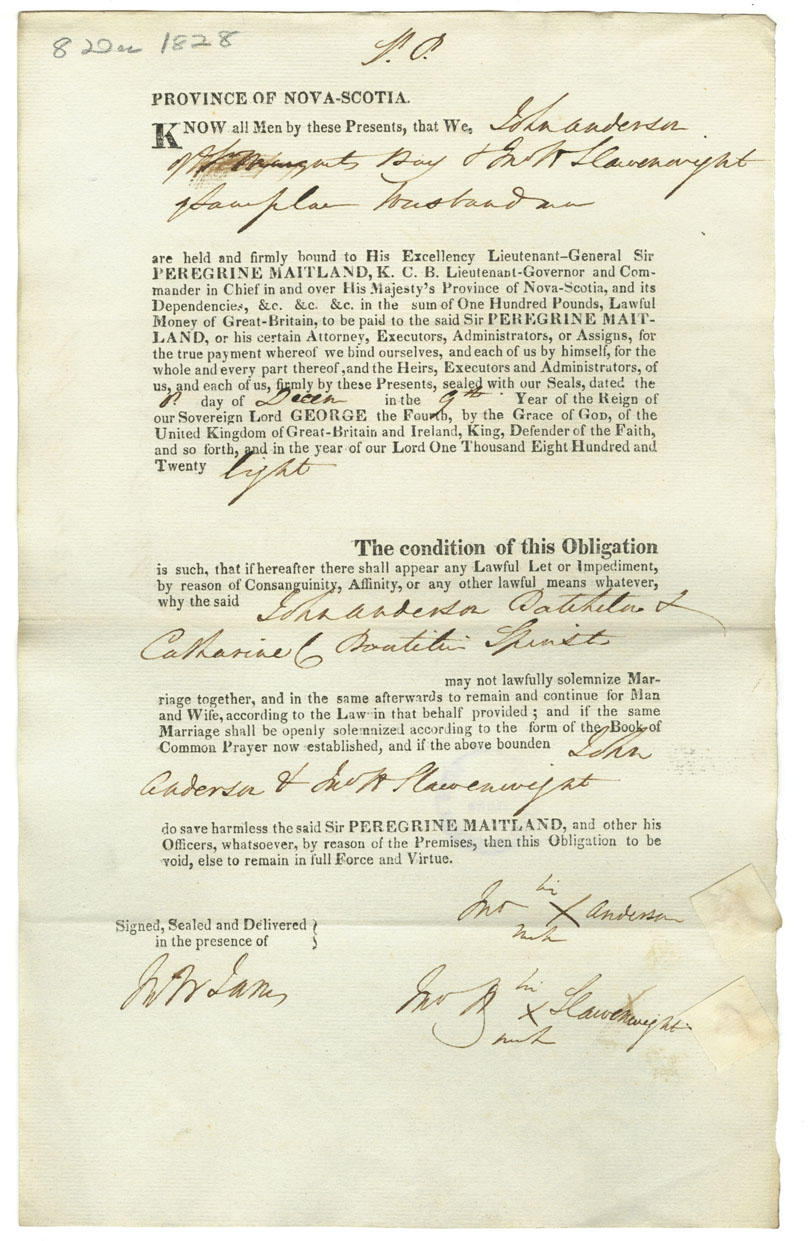 8 Dec 1828
S. P.
PROVINCE OF NOVA-SCOTIA.
KNOW all Men by these Presents, that We, John Anderson
of St Margrets Bay & Jno H Slawenwight
of Same place Husbandmen
are held and firmly bound to His Excellency Lieutenant-General Sir
PEREGRINE MAITLAND, K. C. B. Lieutenant-Governor and Com-
mander in Chief in and over His Majesty's Province of Nova-Scotia, and its
Dependencies, &c. &c. &c. in the sum of One Hundred Pounds, Lawful
Money of Great-Britain, to be paid to the said Sir PEREGRINE MAIT-
LAND, or his certain Attorney, Executors, Administrators, or Assigns, for
the true payment whereof we bind ourselves, and each of us by himself, for the
whole and every part thereof, and the Heirs, Executors and Administrators, of
us, and each of us, firmly by these Presents, sealed with our Seals, dated the
8th day of Decem in the 9th Year of the Reign of
our Sovereign Lord GEORGE the Fourth, by the Grace of God, of the
United Kingdom of Great-Britain and Ireland, King, Defender of the Faith,
and so forth, and in the year of our Lord One Thousand Eight Hundred and
Twenty Eight
The condition of this Obligation
is such, that if hereafter there shall appear any Lawful Let or Impediment,
by reason of Consanguinity, Affinity, or any other lawful means whatever,
why the said John Anderson Batchelor &
Catharine C Boutilier Spinst
may not lawfully solemnize Mar-
riage together, and in the same afterwards to remain and continue for Man
and Wife, according to the Law in that behalf provided ; and if the same
Marriage shall be openly solemnized according to the form of the Book of
Common Prayer now established, and if the above bounden John
Anderson & Jno H Slawenwight
do save harmless the said Sir PEREGRINE MAITLAND, and other his
Officers, whatsoever, by reason of the Premises, then this Obligation to be
void, else to remain in full Force and Virtue.
his
Jno X Anderson
mark
Signed, Sealed and Delivered }
in the presence of
his
Jno H X Slawenwight
mark